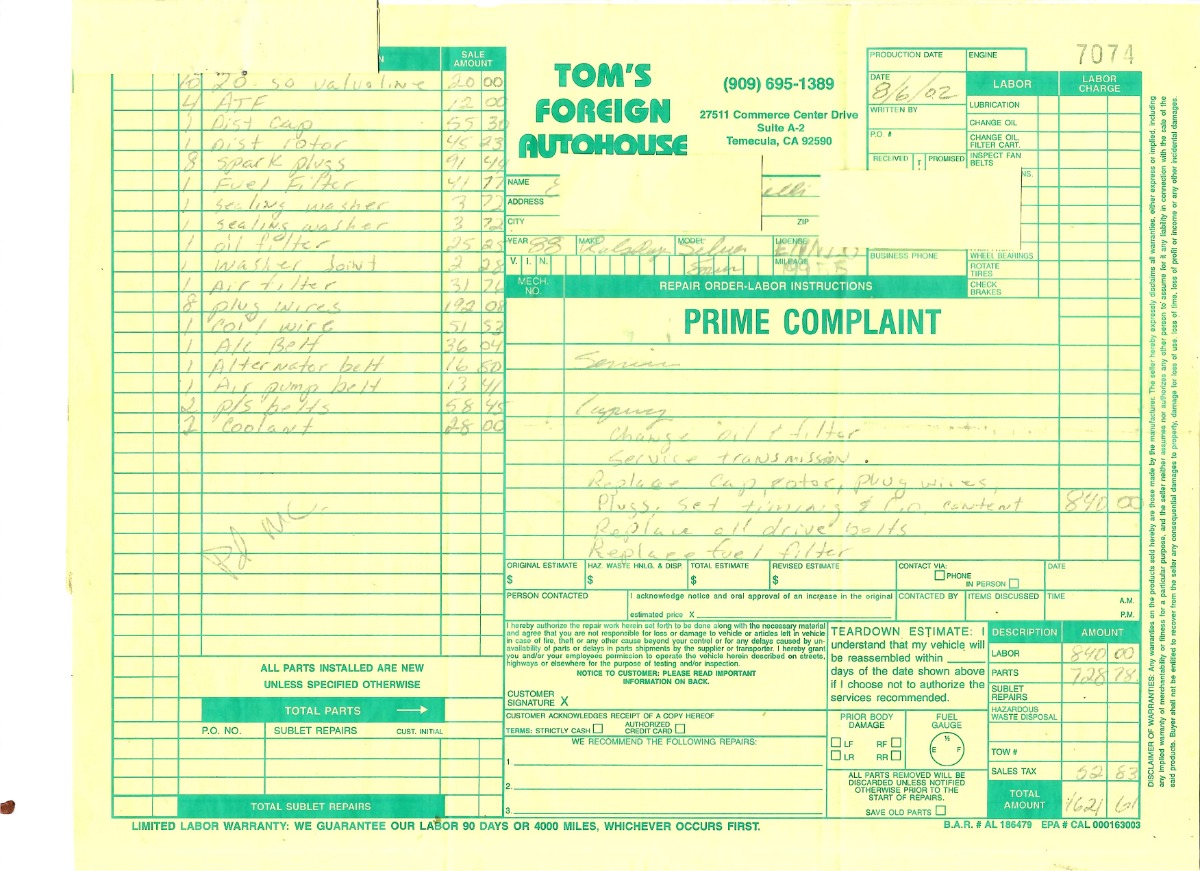 N
SALE AMOUNT
10 20-50 valvoline 20 00
4 ATF 12 00
1 Dist Cap 55 30
1 Dist rotor 45 23
8 spark plugs 91 44
1 Fuel Filter 41 77
1 sealing washer 3 72
1 sealing washer 3 72
1 oil filter 25 25
1 washer Joint 2 28
1 Air filter 31 76
8 plug wires 192 08
1 coil wire 51 53
1 A/C Belt 36 04
1 Alternator belt 16 50
1 Air pump belt 13 41
2 P/S belts 58 45
2 Coolant 28 00
Pd MC.
ALL PARTS INSTALLED ARE NEW
UNLESS SPECIFIED OTHERWISE
TOTAL PARTS
P.O. NO. SUBLET REPAIRS CUST. INITIAL
TOTAL SUBLET REPAIRS
TOM'S
FOREIGN
AUTOHOUSE
(909) 695-1389
27511 Commerce Center Drive
Suite A-2
Temecula, CA 92590
PRODUCTION DATE ENGINE
7074
DATE
8/6/02
WRITTEN BY
P.O. #
RECEIVED PROMISED
LABOR LABOR CHARGE
LUBRICATION
CHANGE OIL
CHANGE OIL, FILTER CART.
INSPECT FAN BELTS
NS.
WHEEL BEARINGS
ROTATE TIRES
CHECK BRAKES
NAME
ADDRESS
CITY ZIP
YEAR 88 MAKE MODEL Silver LICENSE
V. I. N. MILEAGE
BUSINESS PHONE
MECH. NO. REPAIR ORDER-LABOR INSTRUCTIONS
PRIME COMPLAINT
Service
Change oil & filter
Service transmission.
Replace Cap, rotor, plug wires,
Plugs, set timing & C.O. content 840 00
Replace all drive belts
Replace fuel filter
ORIGINAL ESTIMATE $
HAZ. WASTE HNLG. & DISP. $
TOTAL ESTIMATE $
REVISED ESTIMATE $
CONTACT VIA: PHONE IN PERSON
DATE
PERSON CONTACTED
I acknowledge notice and oral approval of an increase in the original
estimated price X
CONTACTED BY
ITEMS DISCUSSED
TIME A.M. P.M.
I hereby authorize the repair work herein set forth to be done along with the necessary material
and agree that you are not responsible for loss or damage to vehicle or articles left in vehicle
in case of fire, theft or any other cause beyond your control or for any delays caused by un-
availability of parts or delays in parts shipments by the supplier or transporter. I hereby grant
you and/or your employees permission to operate the vehicle herein described on streets,
highways or elsewhere for the purpose of testing and/or inspection.
NOTICE TO CUSTOMER: PLEASE READ IMPORTANT
INFORMATION ON BACK.
CUSTOMER
SIGNATURE X
CUSTOMER ACKNOWLEDGES RECEIPT OF A COPY HEREOF
TERMS: STRICTLY CASH AUTHORIZED CREDIT CARD
WE RECOMMEND THE FOLLOWING REPAIRS:
1
2.
3.
TEARDOWN ESTIMATE: I
understand that my vehicle will
be reassembled within
days of the date shown above
if I choose not to authorize the
services recommended.
PRIOR BODY DAMAGE
LF RF
LR RR
FUEL GAUGE
E ½ F
ALL PARTS REMOVED WILL BE
DISCARDED UNLESS NOTIFIED
OTHERWISE PRIOR TO THE
START OF REPAIRS.
SAVE OLD PARTS
DESCRIPTION AMOUNT
LABOR 840 00
PARTS 728 78
SUBLET REPAIRS
HAZARDOUS WASTE DISPOSAL
TOW #
SALES TAX 52 83
TOTAL AMOUNT 1621 61
LIMITED LABOR WARRANTY: WE GUARANTEE OUR LABOR 90 DAYS OR 4000 MILES, WHICHEVER OCCURS FIRST.
B.A.R. # AL 186479 EPA # CAL 000163003
DISCLAIMER OF WARRANTIES: Any warranties on the products sold hereby are those made by the manufacturer. The seller hereby expressly disclaims all warranties, either express or implied, including
any implied warranty of merchantability or fitness for a particular purpose, and the seller neither assumes nor authorizes any other person to assume for it any liability in connection with the sale of the
said products. Buyer shall not be entitled to recover from the seller any consequential damages to property, damage for loss of use, loss of time, loss of profit or income or any other incidental damages.